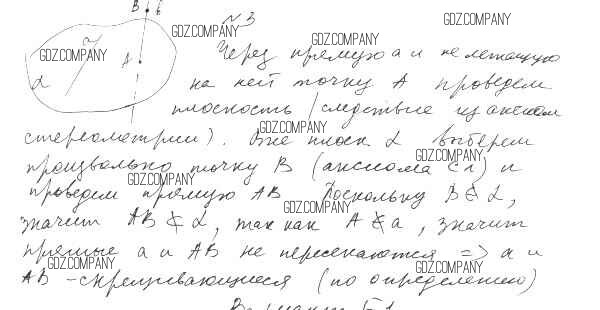 B b
№ 3
a
A
α
Через прямую a и не лежащую
на ней точку A проведем
плоскость (следствие из аксиом
стереометрии). Вне плоск. α выберем
произвольно точку B (аксиома C1) и
проведем прямую AB Поскольку B ∉ α,
значит AB ⊄ α, так как A ∉ a, значит
прямые a и AB не пересекаются => a и
AB - скрещивающиеся (по определению)
GDZ.COMPANY
GDZ.COMPANY
GDZ.COMPANY
GDZ.COMPANY
GDZ.COMPANY
GDZ.COMPANY
GDZ.COMPANY
GDZ.COMPANY
GDZ.COMPANY
GDZ.COMPANY